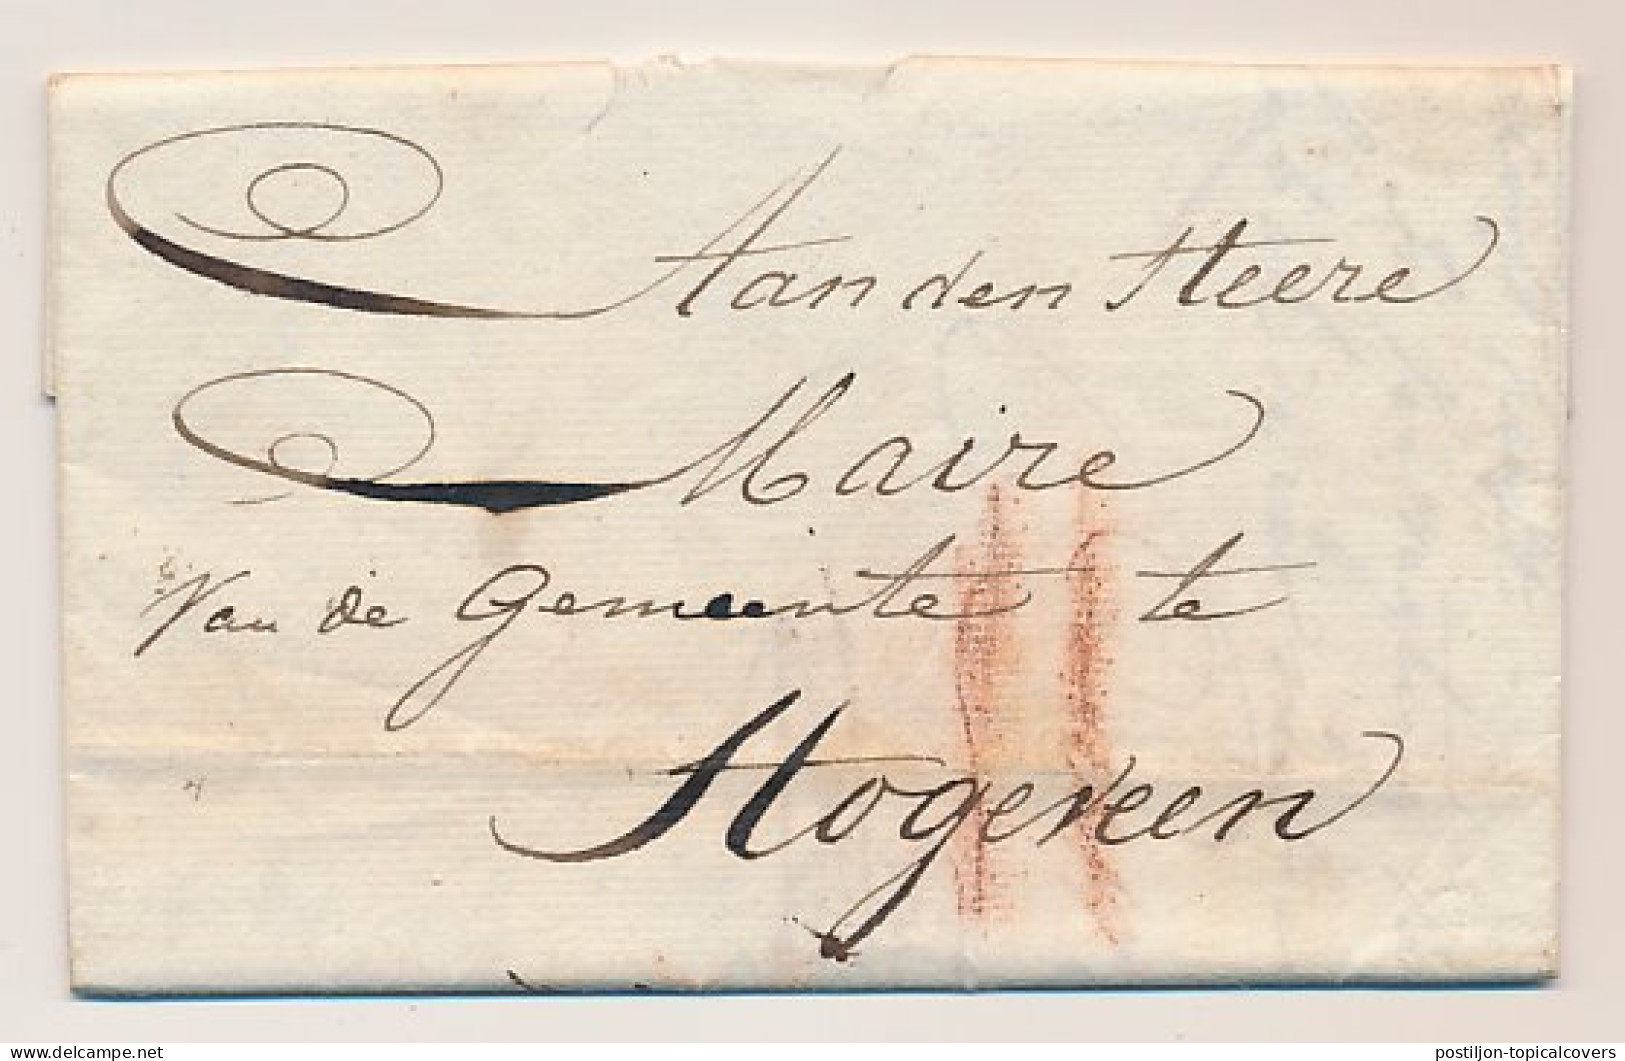 Aan den Heere
Maire
Van de Gemeente te
Hogeveen
www.delcampe.net
postiljon-topicalcovers